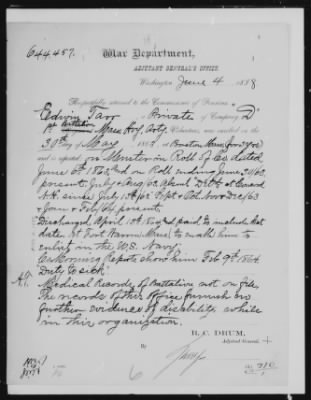 644,457.
War Department,
ADJUTANT GENERAL'S OFFICE,
Washington June 4 1888
Respectfully returned to the Commissioner of Pensions.
Edwin Tarr, a Private of Company "D"
1st Battalion Mass Hvy. Arty. Volunteers, was enrolled on the
30th day of May, at Boston Mass for 3 yrs
and is reported: on Muster in Roll of Co dated
June 6th 1863, and on Roll ending June 30/63
present. July & Aug/63 Absent Detd. at Concord
N.H. since July 13th/63 Sept & Oct. Nov & Dec/63
& Jany & Feb/64 present.
Discharged April 1st 1864, and paid to include that
date at Fort Warren Mass to enable him to
enlist in the U.S. Navy.
Casemening Reports show him Feb 9th 1864
Duty to sick.
Medical Records of Battalion not on file.
The records of this office furnish no
further evidence of disability while
in this organization.
R. C. DRUM,
Adjutant General.
By
6